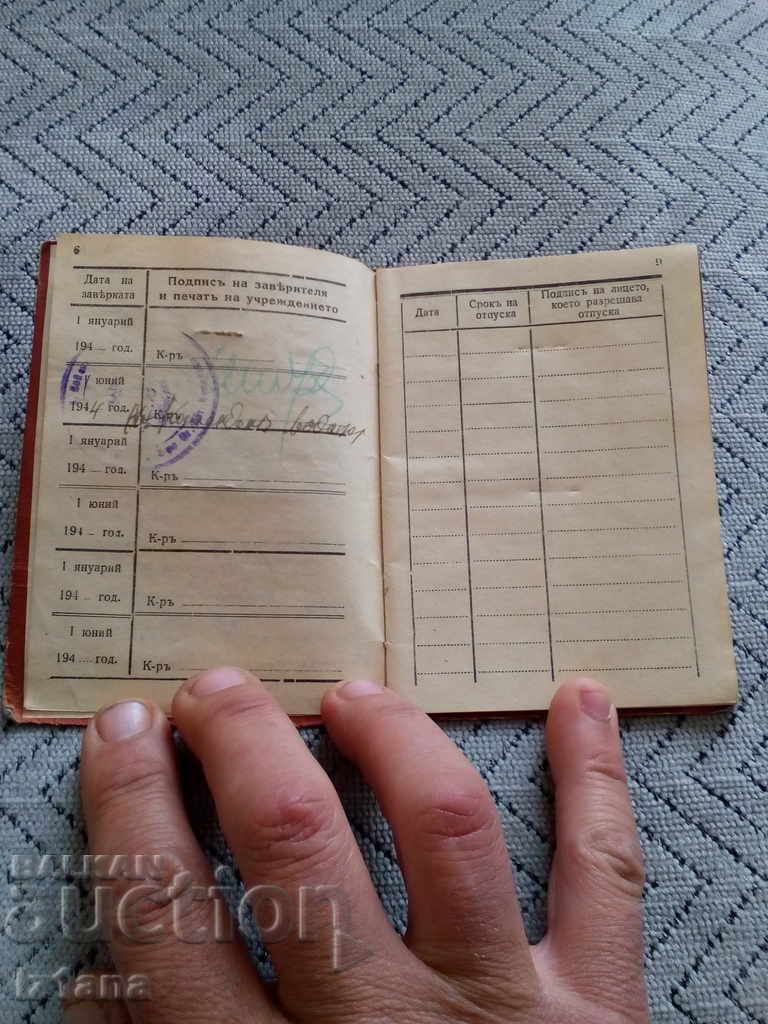 6
Дата на завѣрката
Подписъ на завѣрителя
и печатъ на учреждението
1 януарий
194 год.
К-ръ
1 юний
1944 год.
К-ръ
1 януарий
194 год.
К-ръ
1 юний
194 год.
К-ръ
1 януарий
194 год.
К-ръ
1 юний
194 год.
К-ръ
9
Дата
Срокъ на
отпуска
Подпись на лицето,
което разрешава
отпуска
BALKAN
auction
Iztana